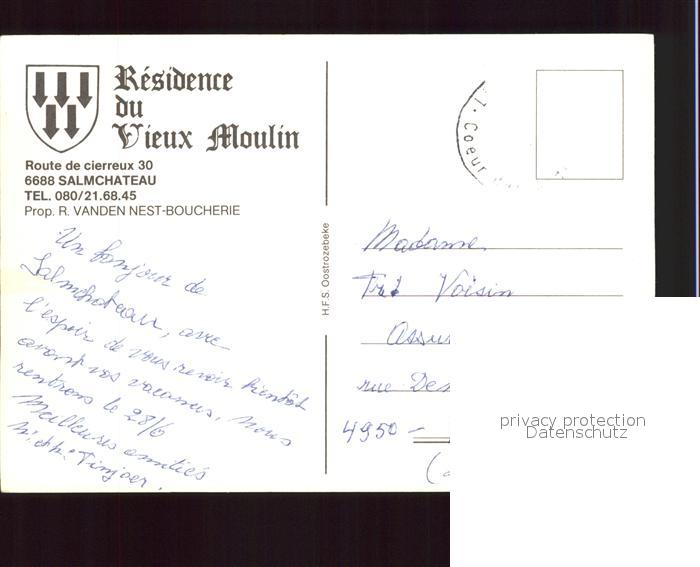 Résidence
du
Vieux Moulin
Route de cierreux 30
6688 SALMCHATEAU
TEL. 080/21.68.45
Prop. R. VANDEN NEST-BOUCHERIE
Un bonjour de
Salmchateau, avec
l'espoir de vous revoir bientôt
avant vos vacances. Nous
rentrons le 28/6
Meilleures amitiés
H.F.S. Oostrozebeke
Coeur
Madame
Voisin
Assu
rue Des
4950 -
privacy protection
Datenschutz